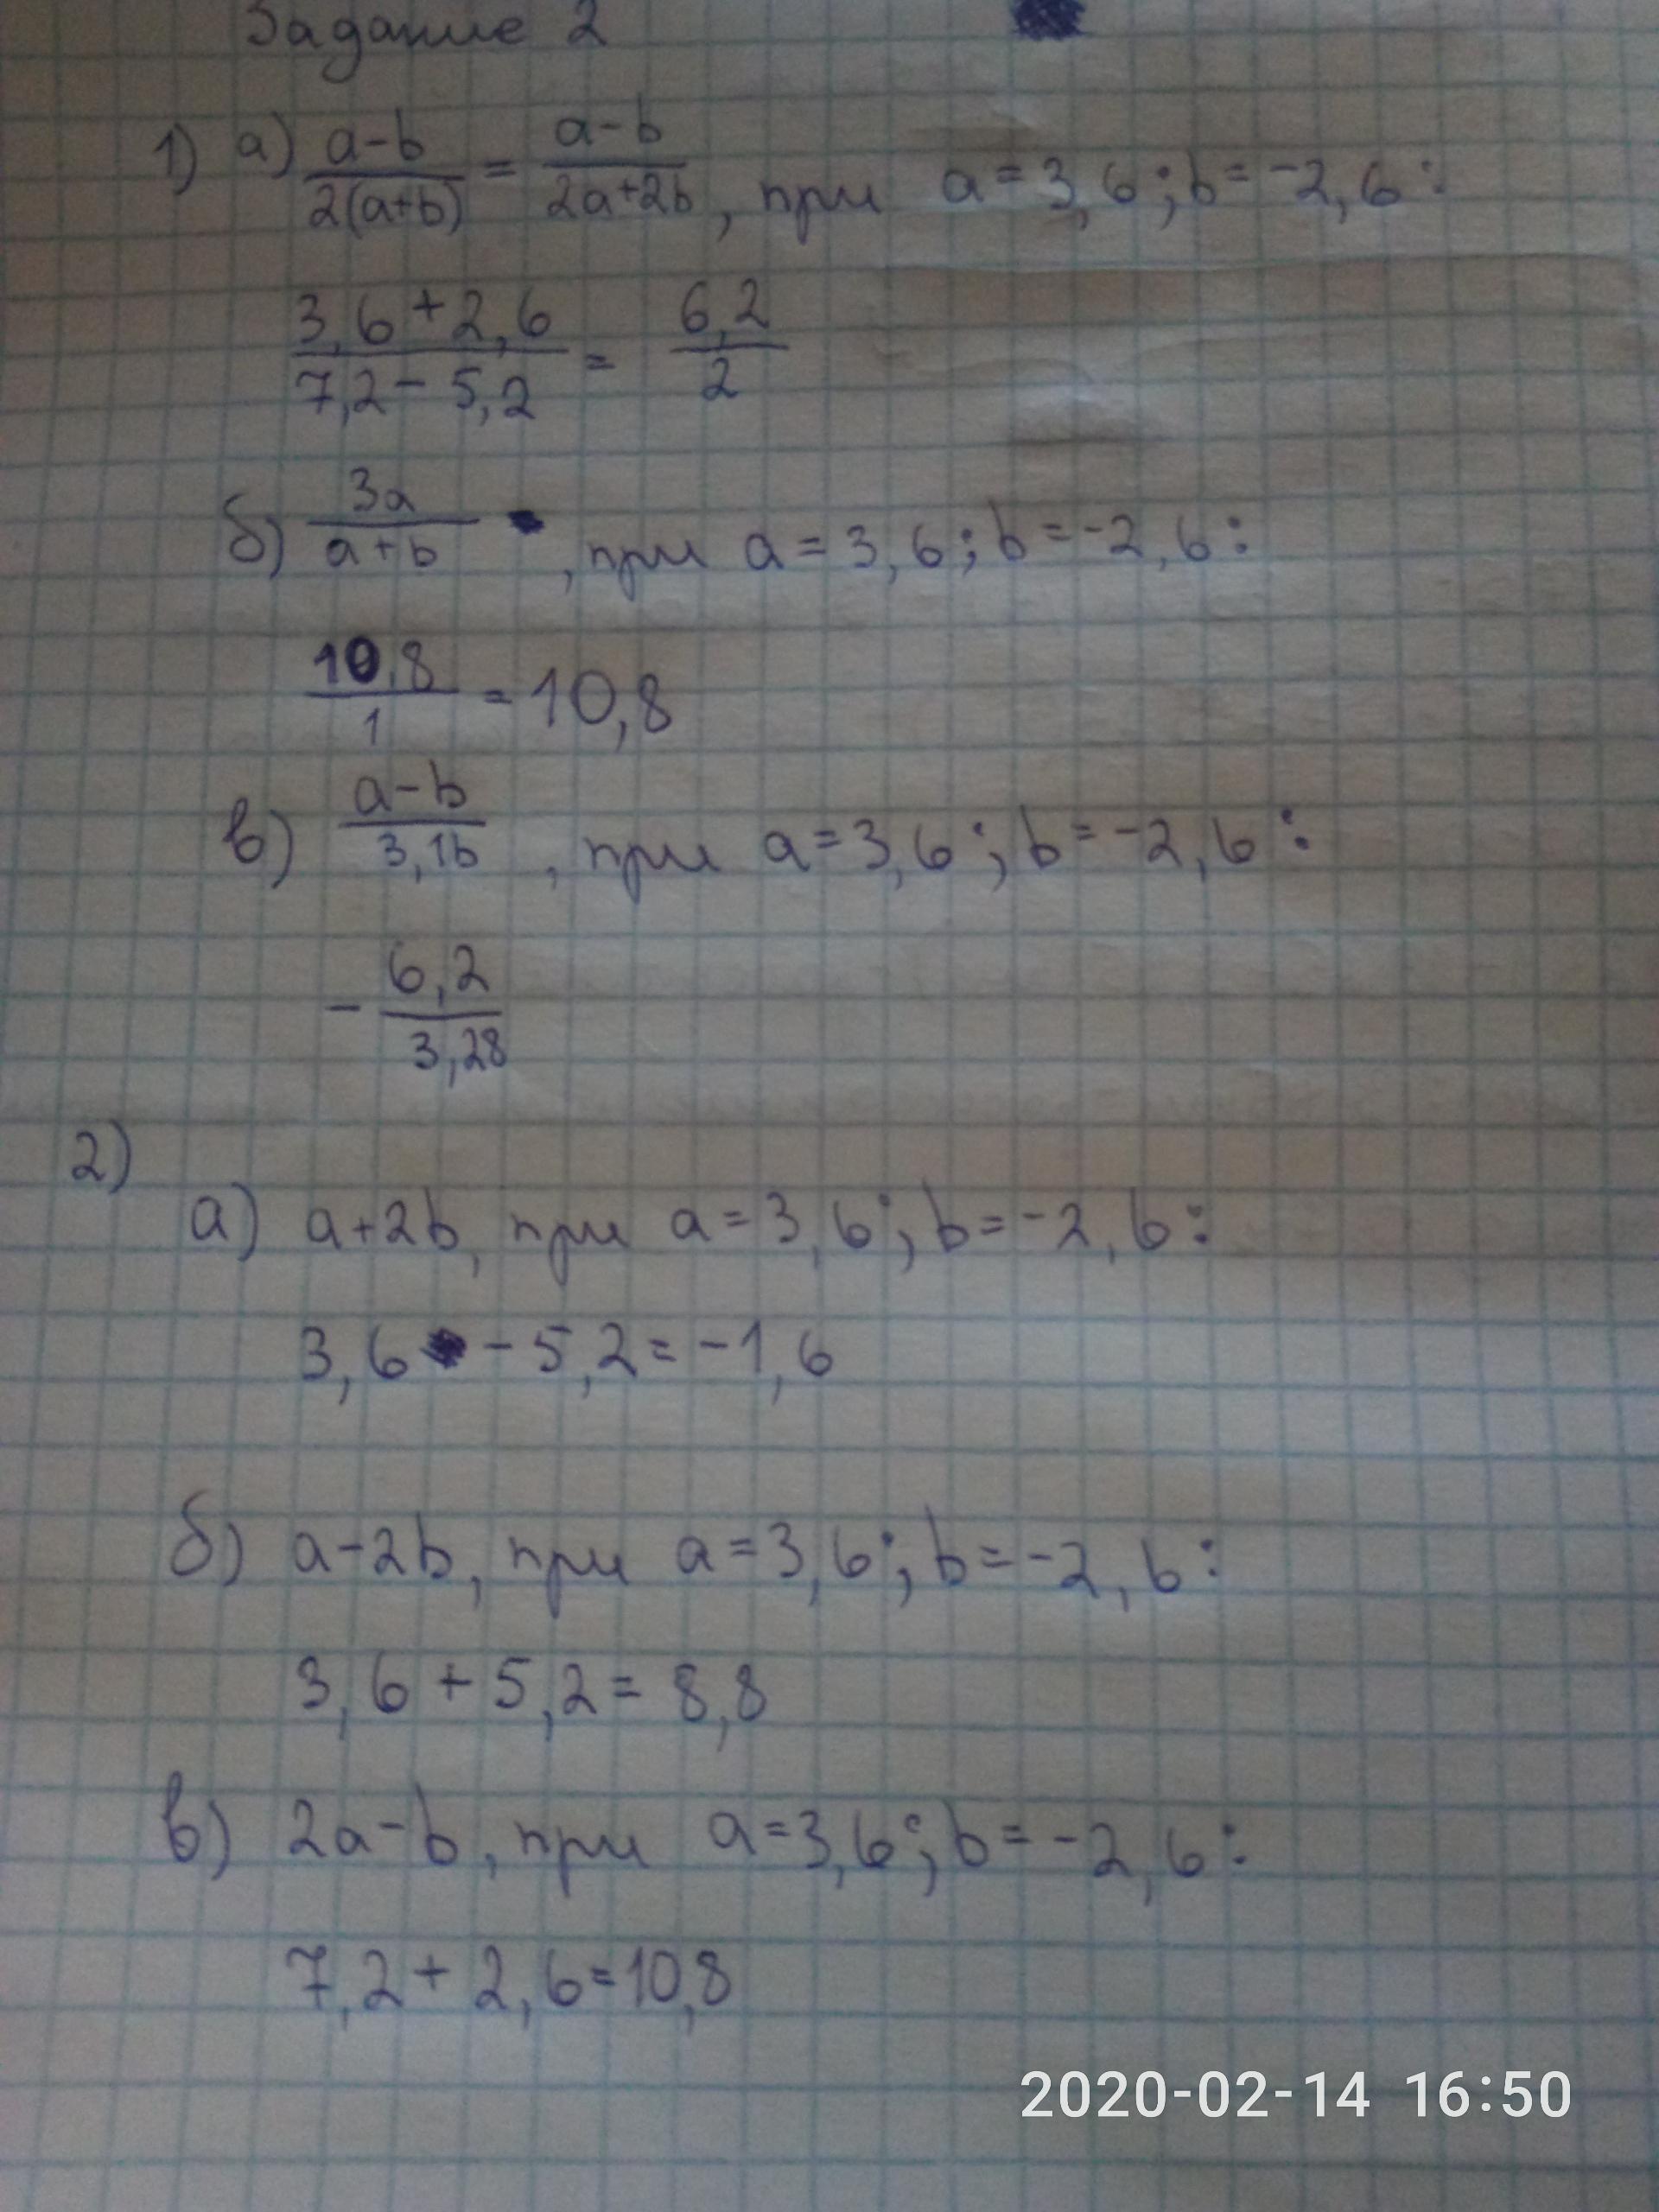 Задание 2
1) а) (a-b)/(2(a+b)) = (a-b)/(2a+2b), при a=3,6; b=-2,6:
(3,6+2,6)/(7,2-5,2) = 6,2/2
б) 3a/(a+b), при a=3,6; b=-2,6:
10,8/1 = 10,8
в) (a-b)/(3,1b), при a=3,6; b=-2,6:
- 6,2/3,28
2)
а) a+2b, при a=3,6; b=-2,6:
3,6 - 5,2 = -1,6
б) a-2b, при a=3,6; b=-2,6:
3,6 + 5,2 = 8,8
в) 2a-b, при a=3,6; b=-2,6:
7,2 + 2,6 = 10,8
2020-02-14 16:50